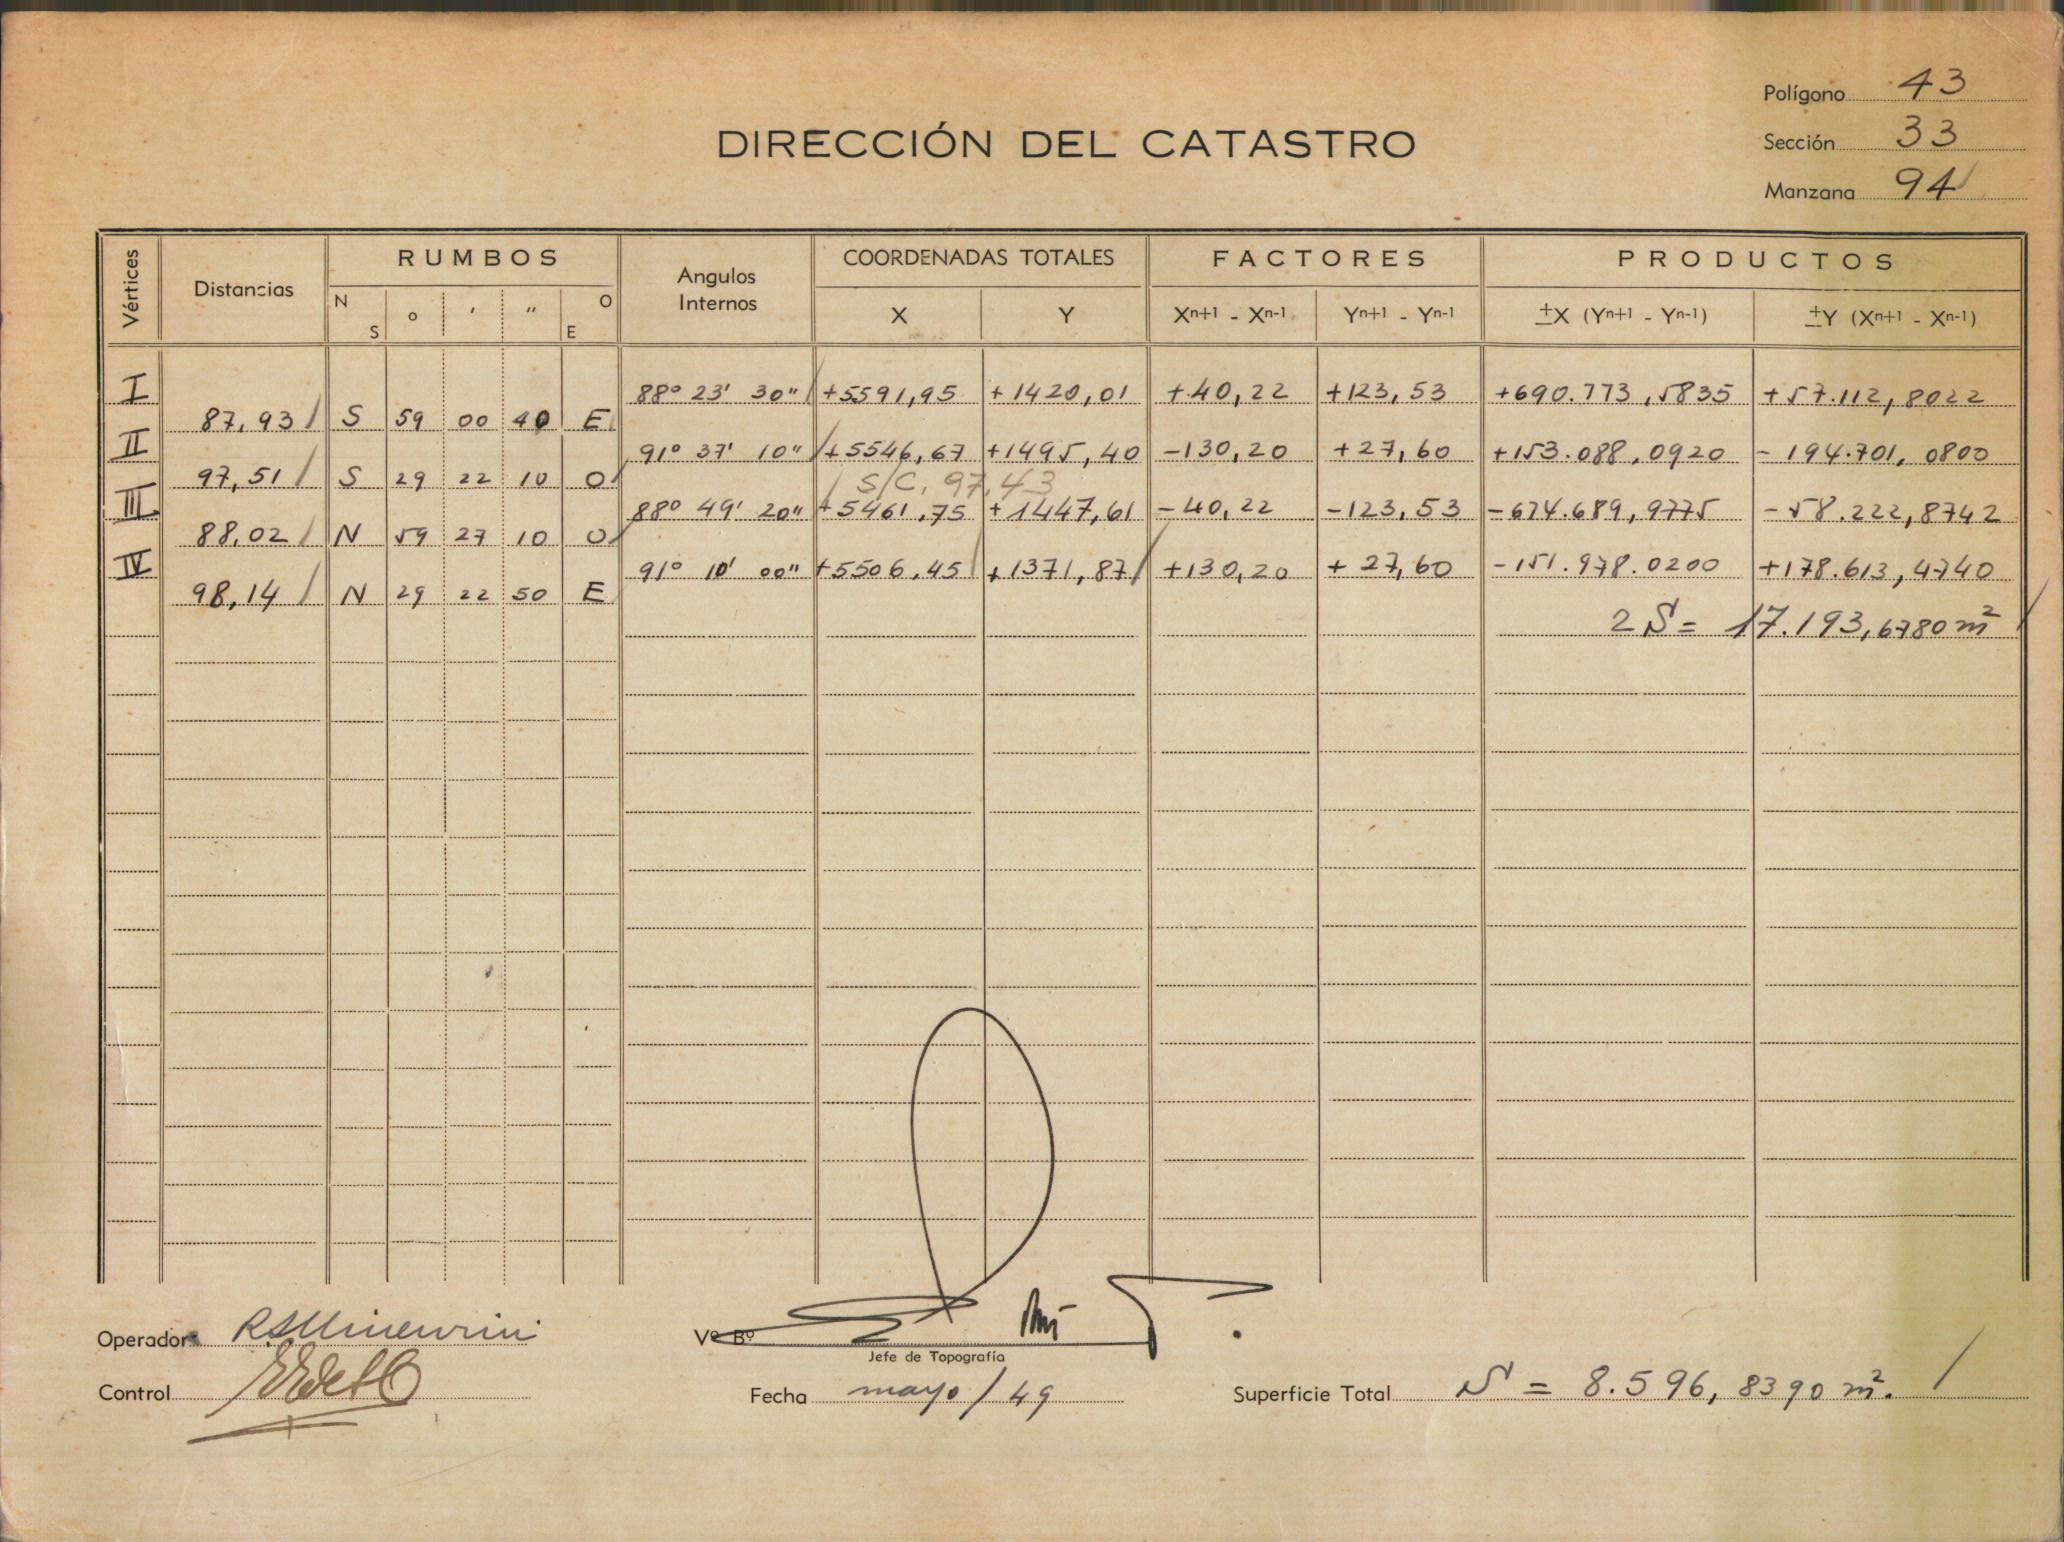 Polígono 43
DIRECCIÓN DEL CATASTRO
Sección 33
Manzana 94
Vértices Distancias RUMBOS Angulos Internos COORDENADAS TOTALES FACTORES PRODUCTOS
N S ° ' " O E X Y Xn+1 - Xn-1 Yn+1 - Yn-1 ±X (Yn+1 - Yn-1) ±Y (Xn+1 - Xn-1)
I 88° 23' 30" +5591,95 +1420,01 +40,22 +123,53 +690.773,5835 +57.112,8022
87,93 S 59 00 40 E
II 91° 37' 10" +5546,67 +1495,40 -130,20 +27,60 +153.088,0920 -194.701,0800
97,51 S 29 22 10 O S/C. 97,43
III 88° 49' 20" +5461,75 +1447,61 -40,22 -123,53 -674.689,9775 -58.222,8742
88,02 N 59 27 10 O
IV 91° 10' 00" +5506,45 +1371,87 +130,20 +27,60 -151.978.0200 +178.613,4740
98,14 N 29 22 50 E
2S = 17.193,6780 m²
Operador
Vº Bº
Jefe de Topografía
Control
Fecha mayo/49
Superficie Total S = 8.596,8390 m².